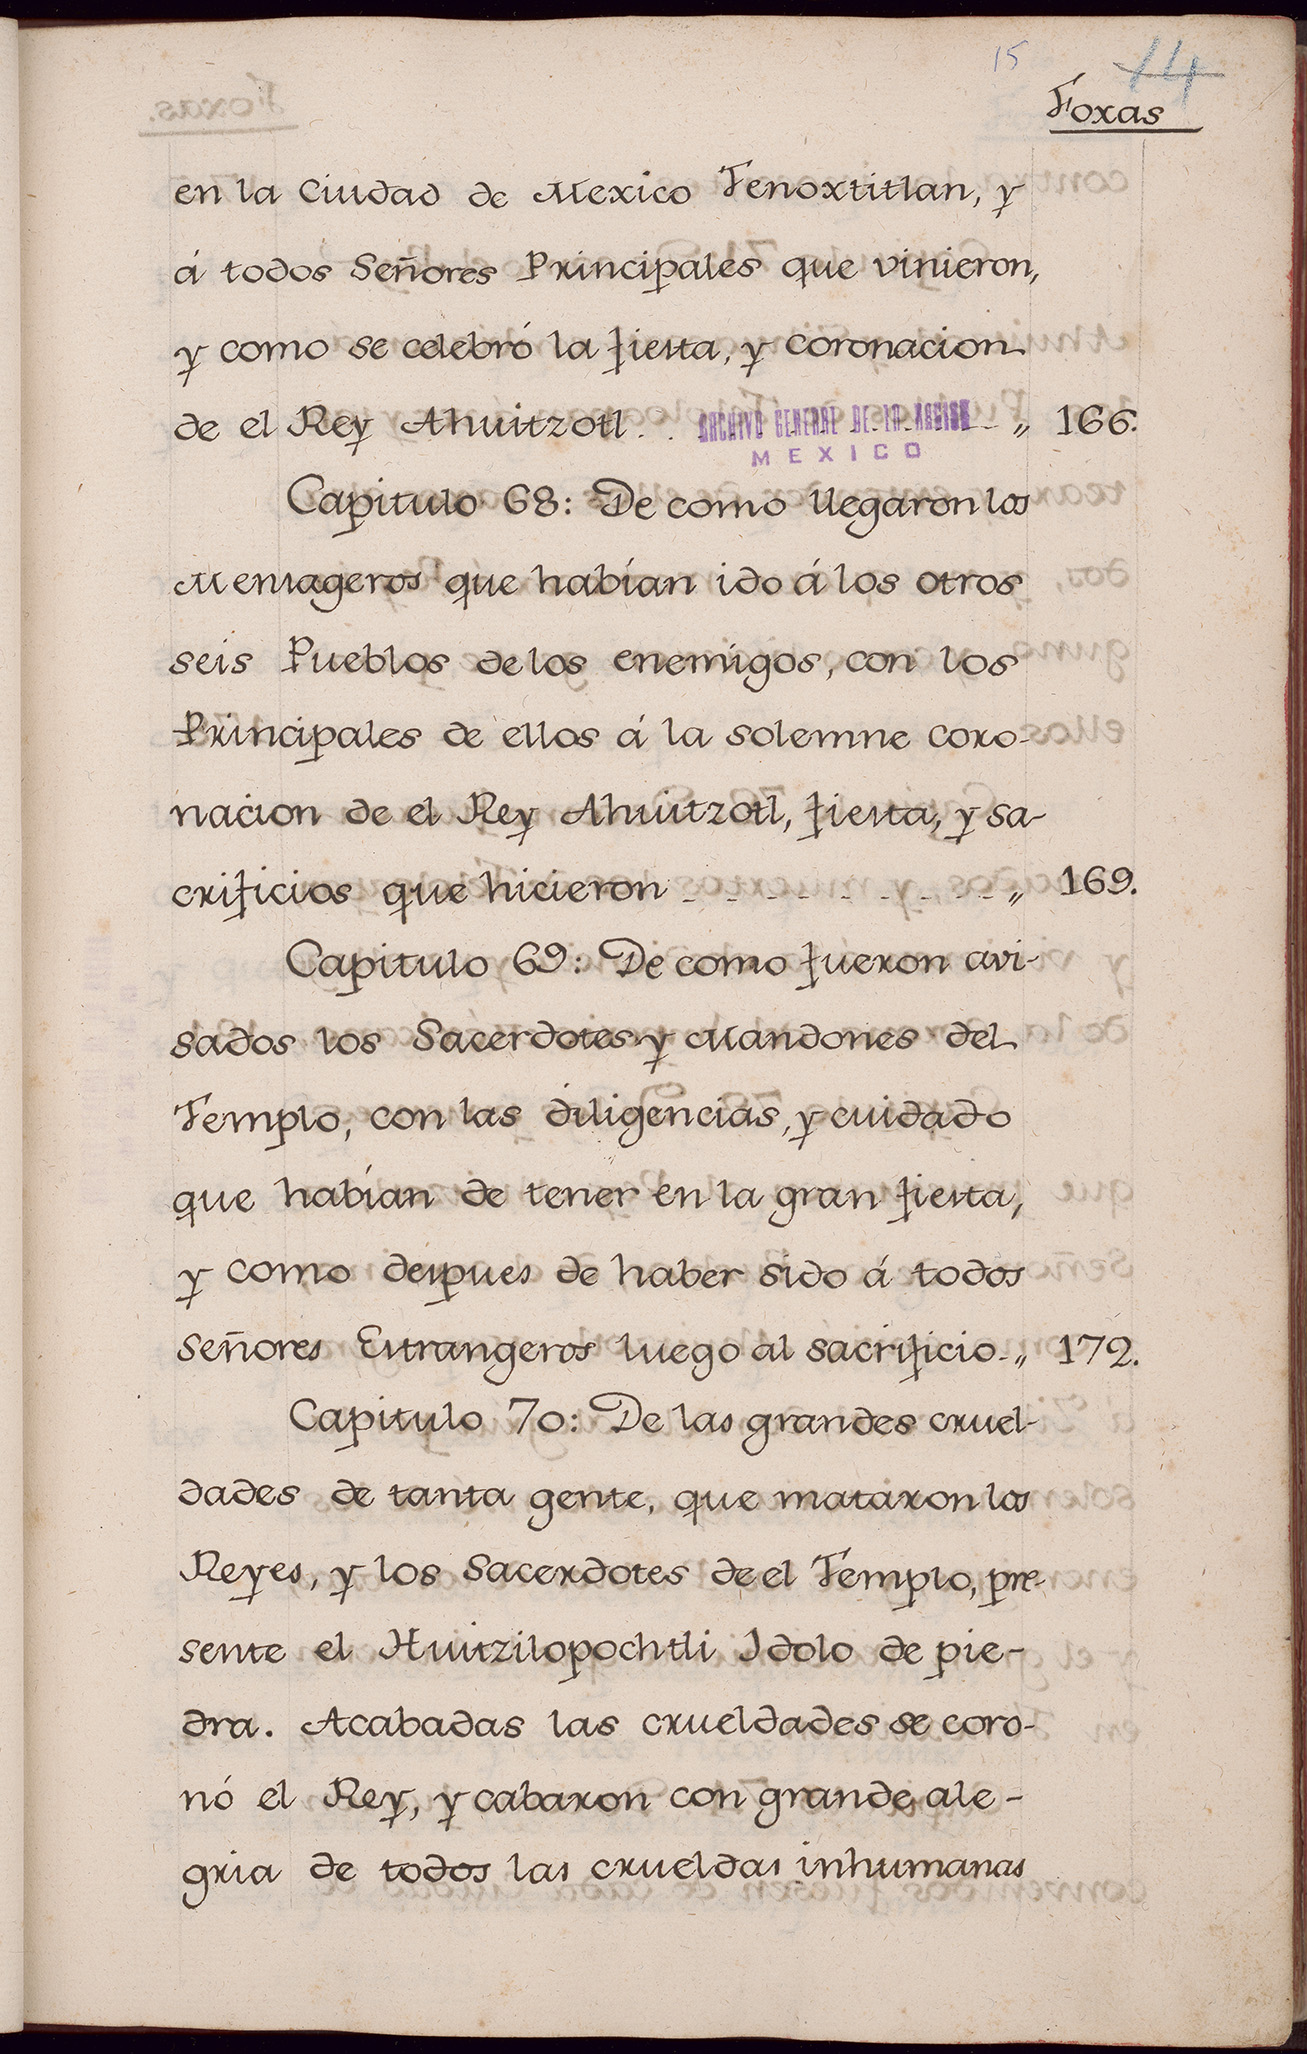 15 14
Foxas
en la Ciudad de Mexico Tenoxtitlan, y
á todos Señores Principales que vinieron,
y como se celebró la fiesta, y coronacion
de el Rey Ahuitzotl . . . „ 166.
ARCHIVO GENERAL DE LA NACION
MEXICO
Capitulo 68: De como llegaron los
Mensageros que habían ido á los otros
seis Pueblos de los enemigos, con los
Principales de ellos á la solemne coro-
nacion de el Rey Ahuitzotl, fiesta, y sa-
crificios que hicieron - - - - - - - - „ 169.
Capitulo 69: De como fueron avi-
sados los Sacerdotes y Mandones del
Templo, con las diligencias, y cuidado
que habían de tener en la gran fiesta,
y como despues de haber sido á todos
señores Estrangeros luego al sacrificio - „ 172.
Capitulo 70: De las grandes cruel-
dades de tanta gente, que mataron los
Reyes, y los Sacerdotes de el Templo, pre-
sente el Huitzilopochtli Idolo de pie-
dra. Acabadas las crueldades se coro-
nó el Rey, y cabaron con grande ale-
gria de todos las crueldas inhumanas